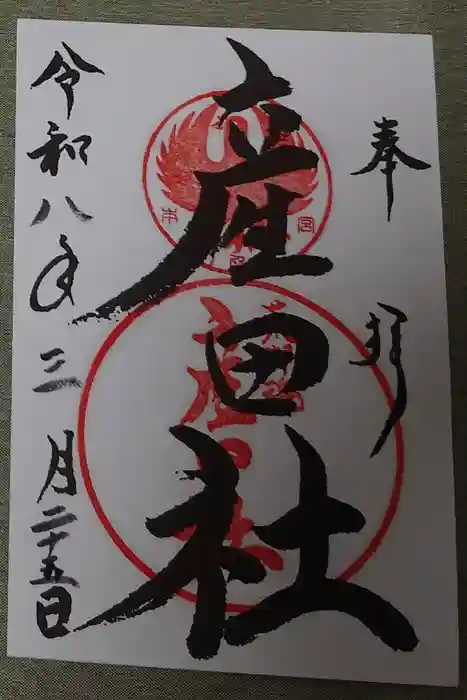 奉拝
産田社
令和八年三月二十五日